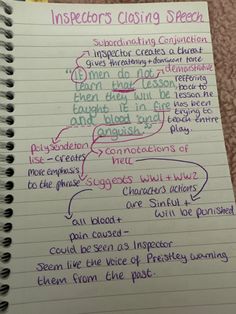 Inspectors Closing Speech
Subordinating Conjunction
inspector creates a threat
gives threatening + dominant tone
demonstrative
"If men do not
learn that lesson,
then they will be
taught it in fire
and blood and
anguish."
referring
back to
lesson he
has been
trying to
teach entire
play.
polysyndeton
list - creates
more emphasis
to the phrase
connotations of
hell
suggests WW1 + WW2
Characters actions
are Sinful +
will be punished
all blood +
pain caused -
could be seen as Inspector
seem like the voice of Priestley warning
them from the past.